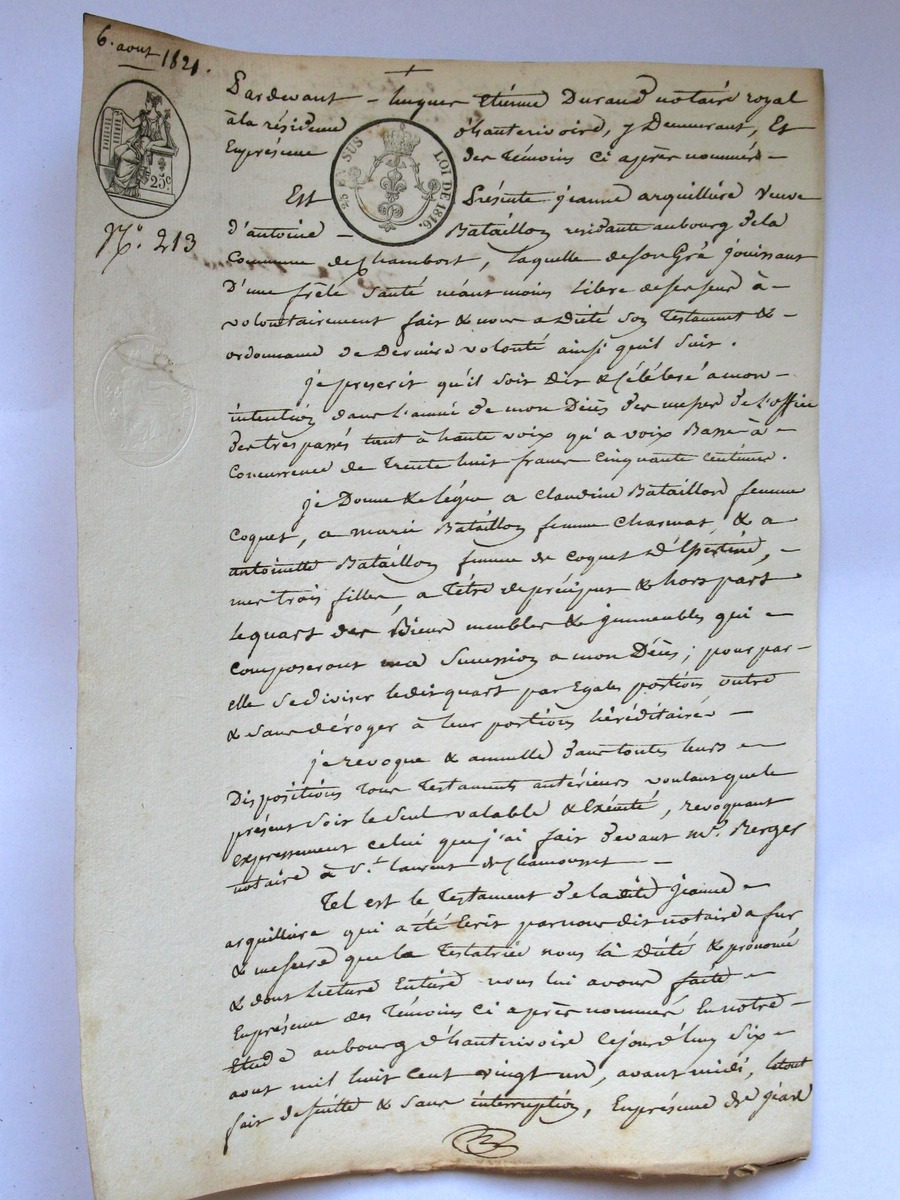 6. aout 1821.
25c
25 EN SUS LOI DE 1816.
N.o 213
Pardevant – hugues Etiénne Durand notaire royal
à la résidence d'hauterivoire, y Demeurant, Et
Enprésence des Témoins Ci après nommés –
Est Présente jeanne arquilliere Veuve
d'antoine – Bataillon residante aubourg de la
Commune de Chambost, laquelle de son Gré jouissant
D'une frêle Santé néantmoins libre de ses sens à –
volontairement fait & nous a Dicté Son Testament & –
ordonnance de Derniere volonté ainsi qu'il Suit.
je prescrit qu'il soit Dit & Célébré à mon –
intention dans l'année de mon Décès des messes de l'office
des trespassés tant à haute voix qu'a voix Basse à –
Concurrence de Trente huit francs Cinquante Centimes.
je Donne & légue a Claudine Bataillon femme
Coquet, a marie Bataillon femme Charmas, & a
antoinette Bataillon femme de Coquet –
mes trois filles, a Titre de préciput & hors part
le quart des Biens meubles & immeubles qui –
Composeront ma Succession a mon Décès; pour par –
elle Se diviser ledit quart par Egales portions outre
& sans déroger à leur portions héréditaires –
je revoque & annulle dans toutes leurs –
Dispositions Tous Testaments antérieurs voulant que le
présent Soit le Seul valable & Exécuté, revoquant
Expressement Celui que j'ai fait devant Me. Berger
notaire à St. laurent de Chamousset –
Tel est le Testament de la dite jeanne –
arquilliere qui a été Ecrit par nous dit notaire a fur
& mesure que la Testatrice nous l'à Dicté & prononcé
& dont lecture Entiere nous lui avons faite –
Enprésence des Témoins Ci après nommés En notre –
Etude aubourg d'hauterivoire Cejourd'huy Six –
aout mil huit Cent vingt un, avant midi, le tout
fait de suitte & sans interruption, Enprésence de